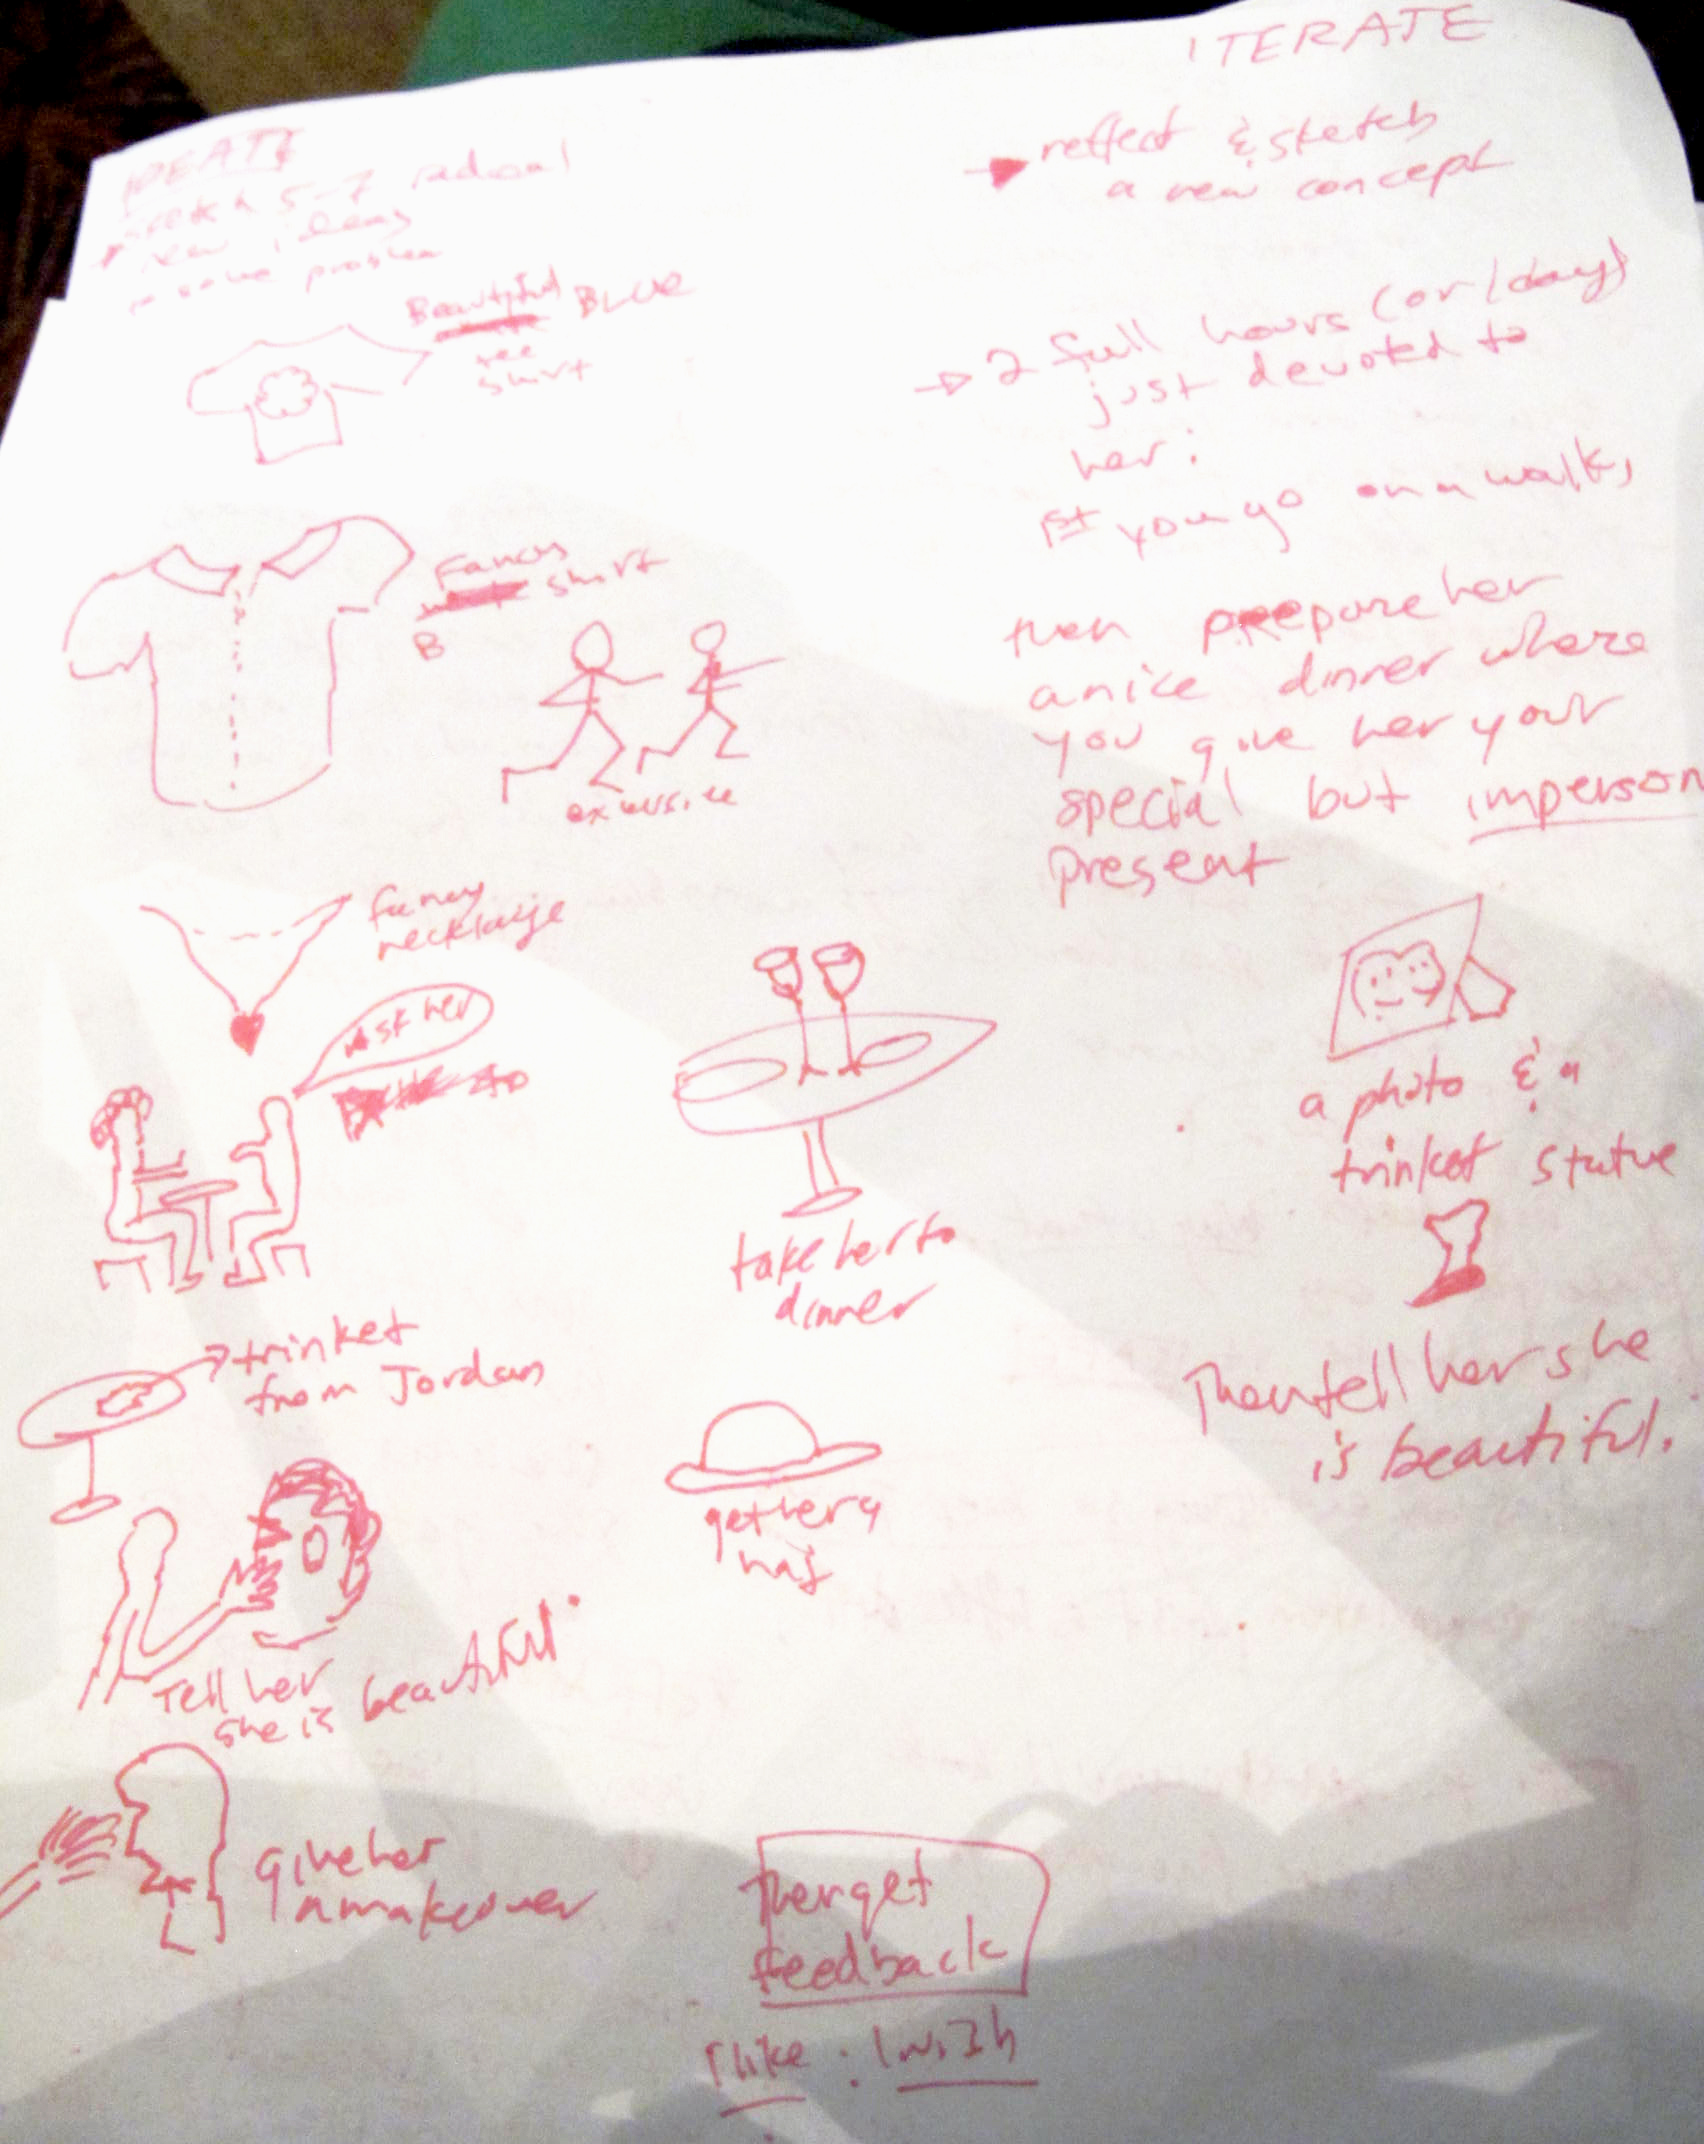 IDEATE
sketch 5-7 radical
new ideas
to solve problem
Beautiful BLUE
tee
shirt
Fancy
shirt
B
excersice
fancy
necklaije
Ask her
to
trinket
from Jordan
Tell her
she is beautiful.
give her
a makeover
take her to
dinner
get her a
hat
then get
feedback
I like : I wish
ITERATE
reflect & sketch
a new concept
2 full hours (or 1 day)
just devoted to
her:
1st you go on a walk,
then prepare her
a nice dinner where
you give her your
special but imperson
present
a photo & a
trinket statue
Then tell her she
is beautiful.